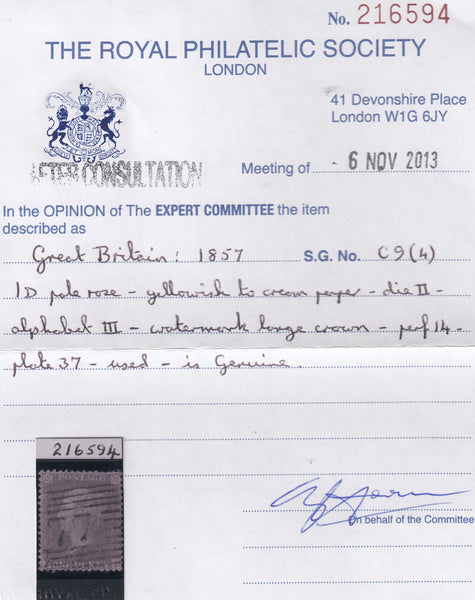 No. 216594
THE ROYAL PHILATELIC SOCIETY
LONDON
41 Devonshire Place
London W1G 6JY
AFTER CONSULTATION
Meeting of - 6 NOV 2013
In the OPINION of The EXPERT COMMITTEE the item
described as
Great Britain: 1857 S.G. No. C9(4)
1D pale rose - yellowish to cream paper - die II -
alphabet III - watermark large crown - perf 14 -
plate 37 - used - is Genuine.
216594
POSTAGE
ONE PENNY
On behalf of the Committee